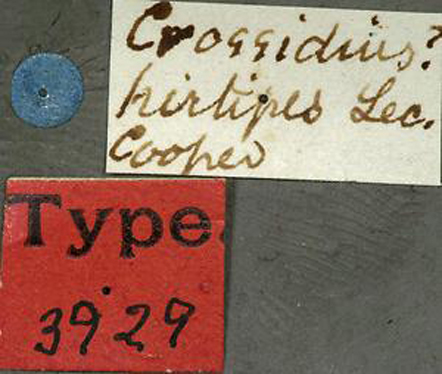 Crossidius?
hirtipes Lec.
Cooper
Type
3929